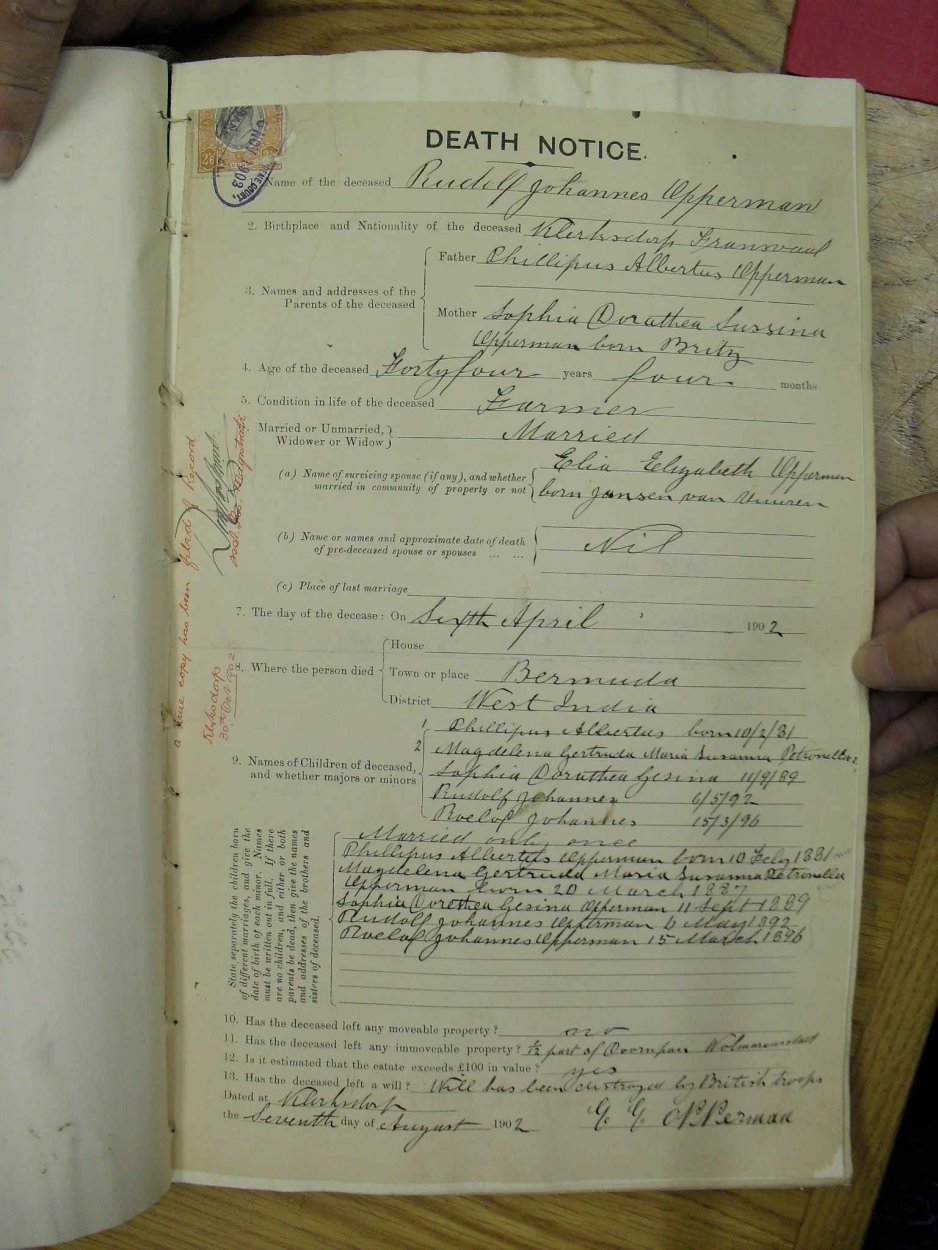 DEATH NOTICE.
Name of the deceased Rudolf Johannes Opperman
2. Birthplace and Nationality of the deceased Klerksdorp Transvaal
3. Names and addresses of the Parents of the deceased
Father Phillipus Albertus Opperman
Mother Sophia Dorathea Sussina
Opperman born Britz
4. Age of the deceased Forty four years four months
5. Condition in life of the deceased Farmer
Married or Unmarried, Widower or Widow Married
(a) Name of surviving spouse (if any), and whether married in community of property or not
Elia Elizabeth Opperman
born Jansen van Vuuren
(b) Name or names and approximate date of death of pre-deceased spouse or spouses ... ... Nil
(c) Place of last marriage
7. The day of the decease: On Sixth April 1902
8. Where the person died
House
Town or place Bermuda
District West India
9. Names of Children of deceased, and whether majors or minors
1 Phillipus Albertus born 10/2/81
2 Magdelena Gertruda Maria Susanna Petronella
Sophia Dorathea Gesina 11/9/89
Rudolf Johannes 6/5/92
Roelof Johannes 15/3/96
State separately the children born
of different marriages, and give the
date of birth of each minor. Names
must be written out in full. If there
are no children, and either or both
parents be dead, then give the names
and addresses of the brothers and
sisters of deceased.
Married only once
Phillipus Albertus Opperman born 10 Feby 1881
Magdelena Gertruda Maria Susanna Petronella
Opperman born 20 March 1887
Sophia Dorothea Gesina Opperman 11 Sept 1889
Rudolf Johannes Opperman 6 May 1892
Roelof Johannes Opperman 15 March 1896
10. Has the deceased left any moveable property? no
11. Has the deceased left any immoveable property? part of Doornpan Wolmaransstad
12. Is it estimated that the estate exceeds £100 in value? yes
13. Has the deceased left a will? Will has been destroyed by British troops
Dated at Klerksdorp
the Seventh day of August 1902 G. G. Opperman
a true copy has been filed of record
Asst. Res. Magistrate
Klerksdorp
30th Oct 1902